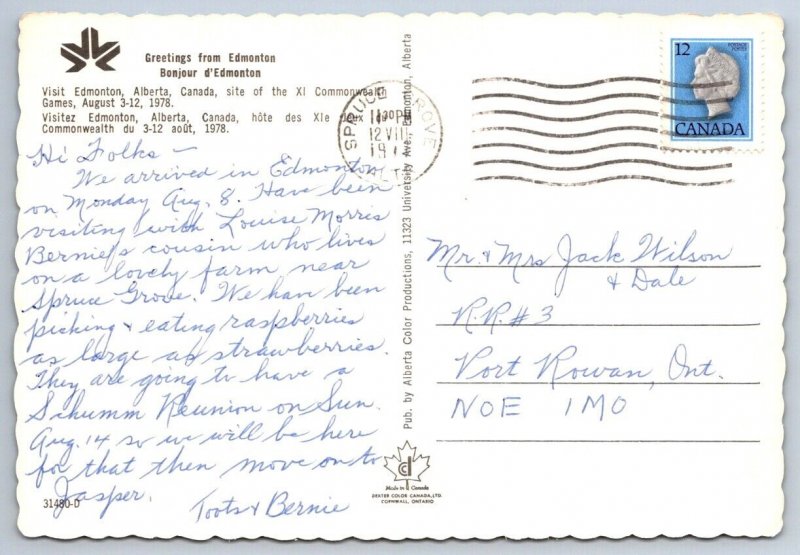 Greetings from Edmonton
Bonjour d'Edmonton
Visit Edmonton, Alberta, Canada, site of the XI Commonwealth
Games, August 3-12, 1978.
Visitez Edmonton, Alberta, Canada, hôte des XIe Jeux
Commonwealth du 3-12 août, 1978.
Hi Folks —
We arrived in Edmonton
on Monday Aug. 8. Have been
visiting with Louise Morris
Bernie's cousin who lives
on a lovely farm near
Spruce Grove. We have been
picking & eating raspberries
as large as strawberries.
They are going to have a
Schumm Reunion on Sun.
Aug. 14 so we will be here
for that then move on to
Jasper.
Toots & Bernie
31480-D
Pub. by Alberta Color Productions, 11323 University Ave., Edmonton, Alberta
SPRUCE GROVE
PM
12 VIII
19
12
POSTAGE
POSTES
CANADA
Mr. & Mrs Jack Wilson
& Dale
R.R. #3
Port Rowan, Ont.
NOE 1MO
Made in Canada
DEXTER COLOR CANADA, LTD.
CORNWALL, ONTARIO